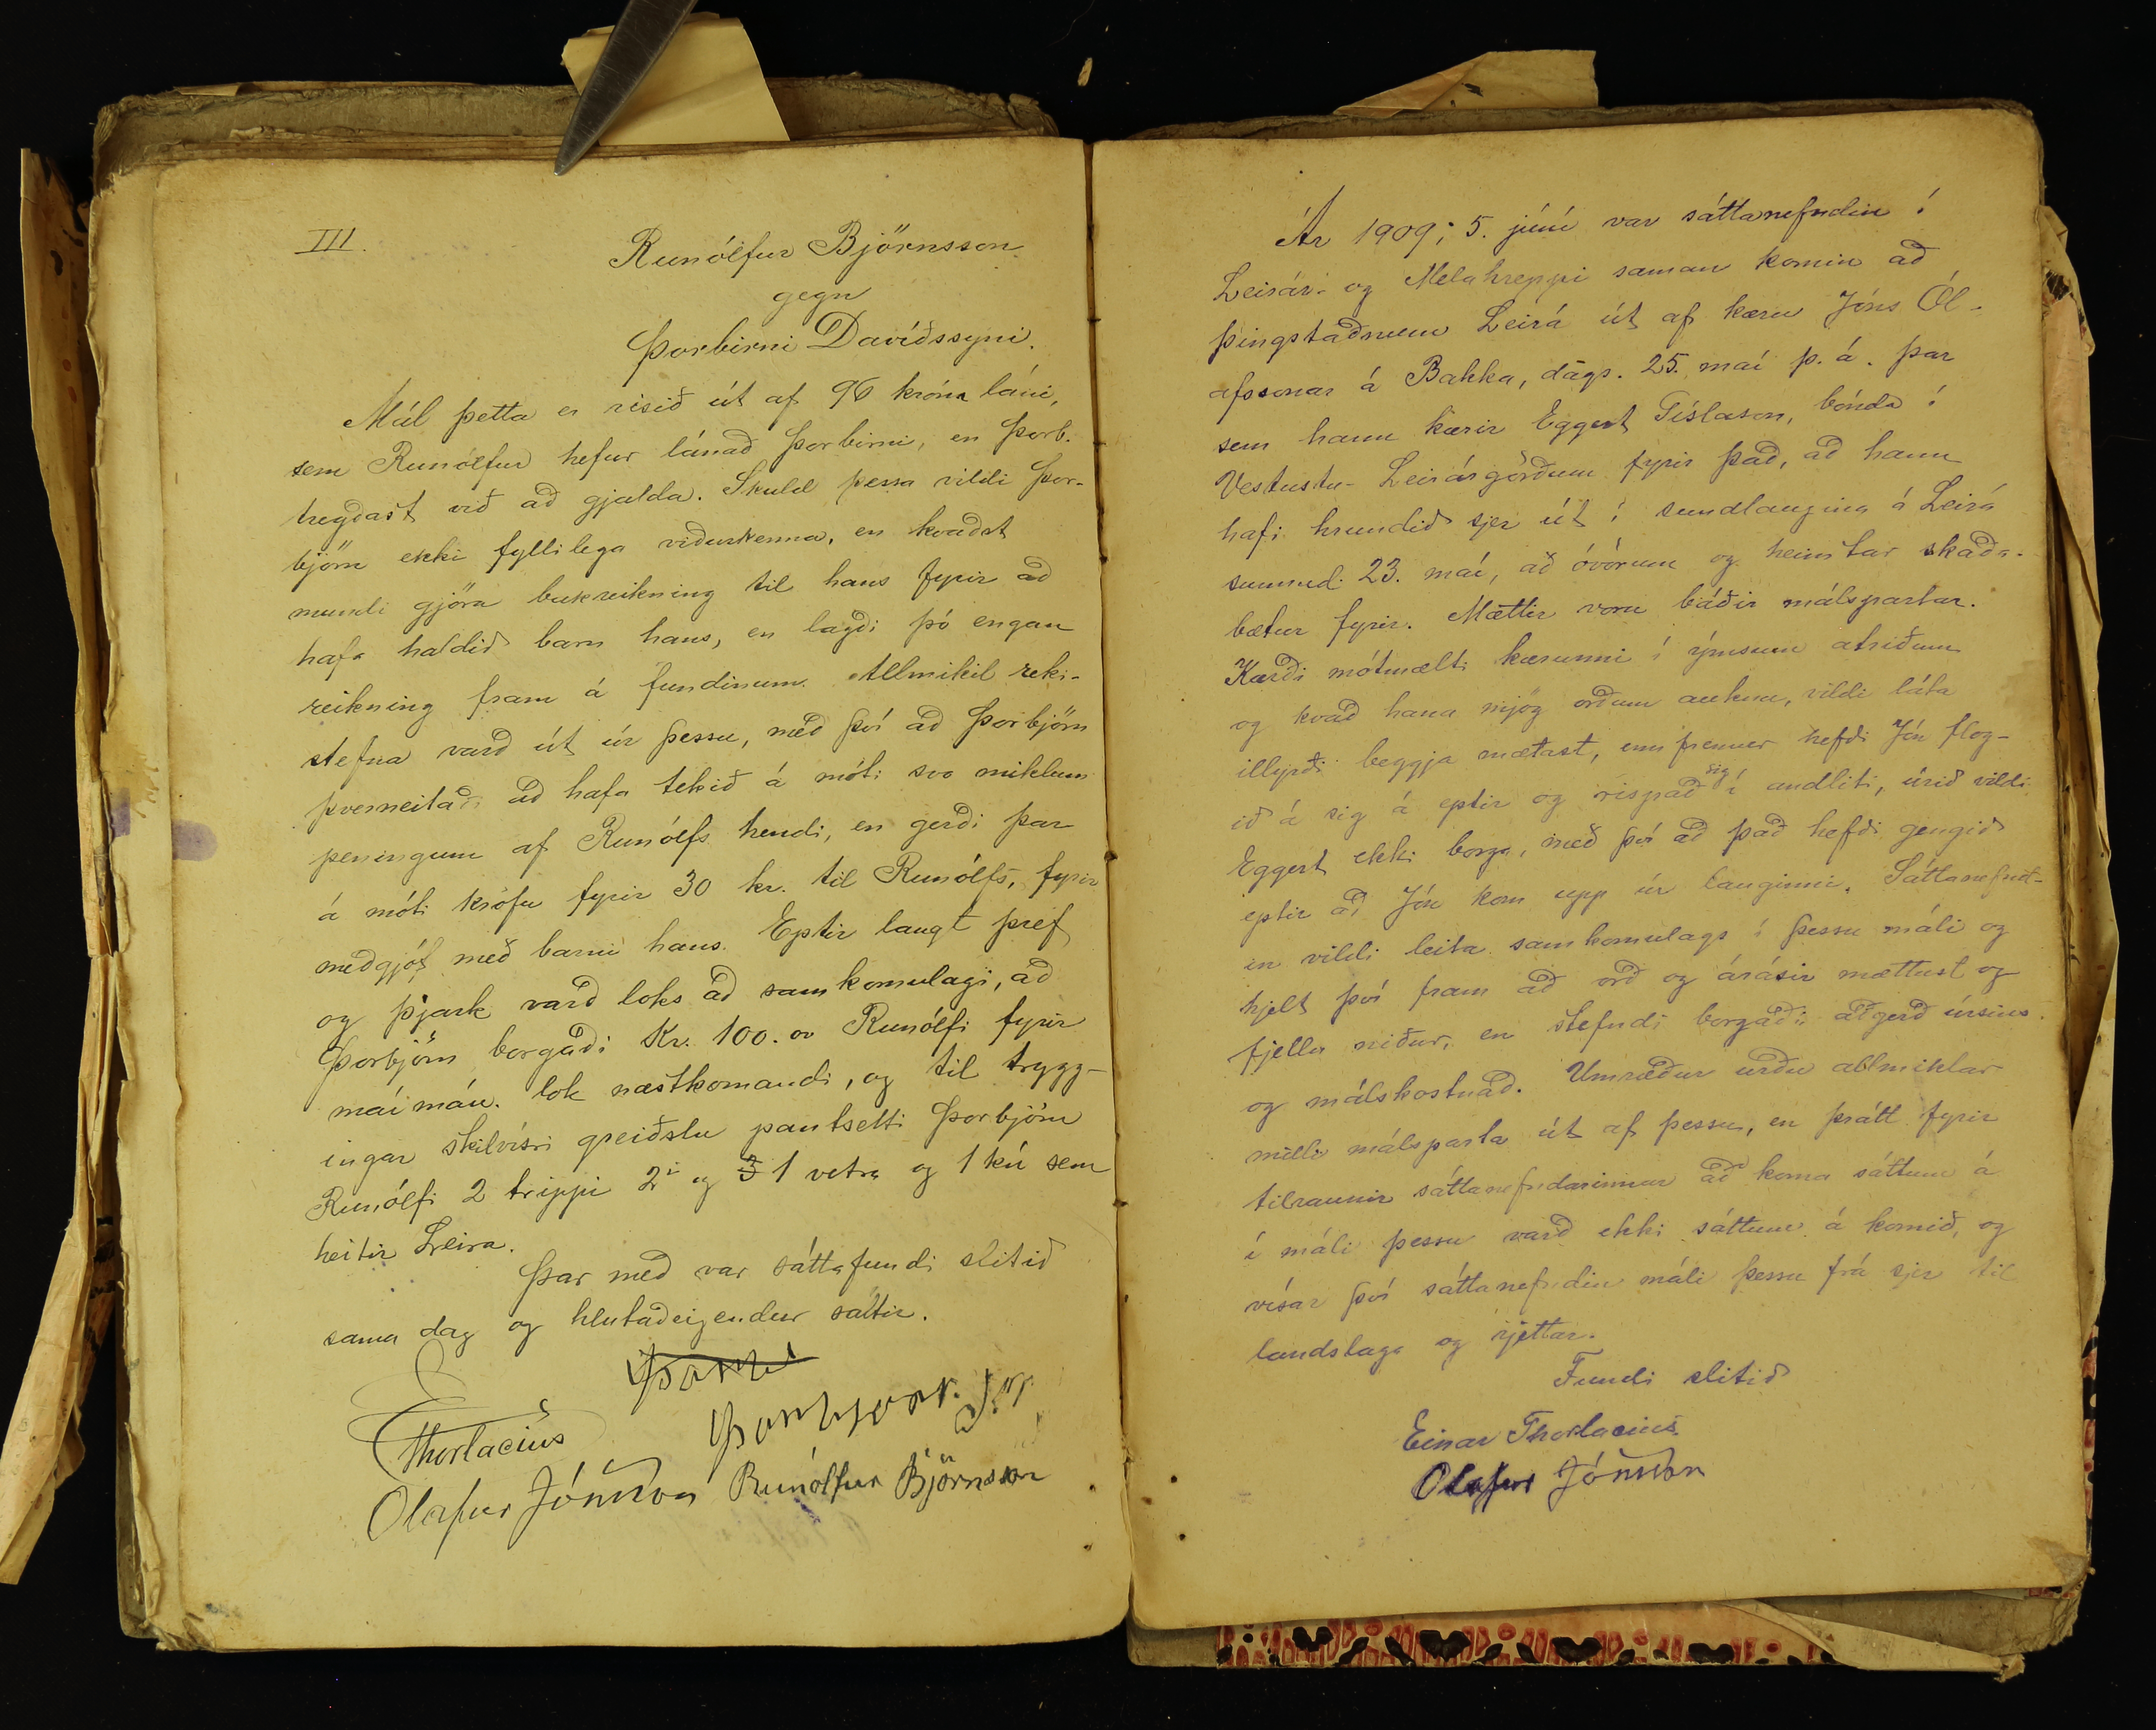 III.
Runólfur Björnsson
gegn
Þorbirni Davíðssyni.
Mál þetta er risið út af 96 króna láni,
sem Runólfur hefur lánað Þorbirni, en Þorb.
tregðast við að gjalda. Skuld þessa vildi Þor-
björn ekki fyllilega viðurkenna, en kvaðst
mundi gjöra bakreikning til hans fyrir að
hafa haldið barn hans, en lagði þó engan
reikning fram á fundinum. Allmikil reki-
stefna varð út úr þessu, með því að Þorbjörn
þverneitaði að hafa tekið á móti svo miklum
peningum af Runólfs hendi, en gerði þar
á móti kröfu fyrir 30 kr. til Runólfs, fyrir
meðgjöf með barni hans. Eptir langt þref
og þjark varð loks að samkomulagi, að
Þorbjörn borgaði Kr. 100.00 Runólfi fyrir
maímán. lok næstkomandi, og til trygg-
ingar skilvísri greiðslu pantsetti Þorbjörn
Runólfi 2 trippi 2i og 3 1 vetra og 1 kú sem
heitir Leira.
Þar með var sáttafundi slitið
sama dag og hlutaðeigendur sáttir.
Þorbj
EThorlacius
Þorbjörn
Olafur Jónsson Runólfur Björnsson
Ár 1909; 5. júní var sáttanefndin í
Leirár- og Melahreppi saman komin að
þingstaðnum Leirá út af kæru Jóns Ól-
afssonar á Bakka, dags. 25. maí þ. á. þar
sem hann kærir Eggert Gíslason, bónda í
Vestustu-Leirárgörðum fyrir það, að hann
hafi hrundið sjer út í sundlaugina á Leirá
sunnud. 23. maí, að óvörum og heimtar skaða-
bætur fyrir. Mættir voru báðir málspartar.
Kærði mótmælti kærunni í ýmsum atriðum
og kvað hana mjög orðum aukna, vildi láta
illyrði beggja mætast, enn fremur hefði Jón flog-
ið á sig á eptir og rispað sig í andliti, úrið vildi
Eggert ekki borga, með því að það hefði gengið
eptir að Jón kom upp úr lauginni. Sáttanefnd-
in vildi leita samkomulags í þessu máli og
hjelt því fram að orð og árásir mættust og
fjellu niður, en stefndi borgaði aðgerð úrsins
og málskostnað. Umræður urðu allmiklar
milli málsparta út af þessu, en þrátt fyrir
tilraunir sáttanefndarinnar að koma sáttum á
í máli þessu varð ekki sáttum á komið, og
vísar því sáttanefndin máli þessu frá sjer til
landslaga og rjettar.
Fundi slitið
Einar Thorlacius
Olafur Jónsson